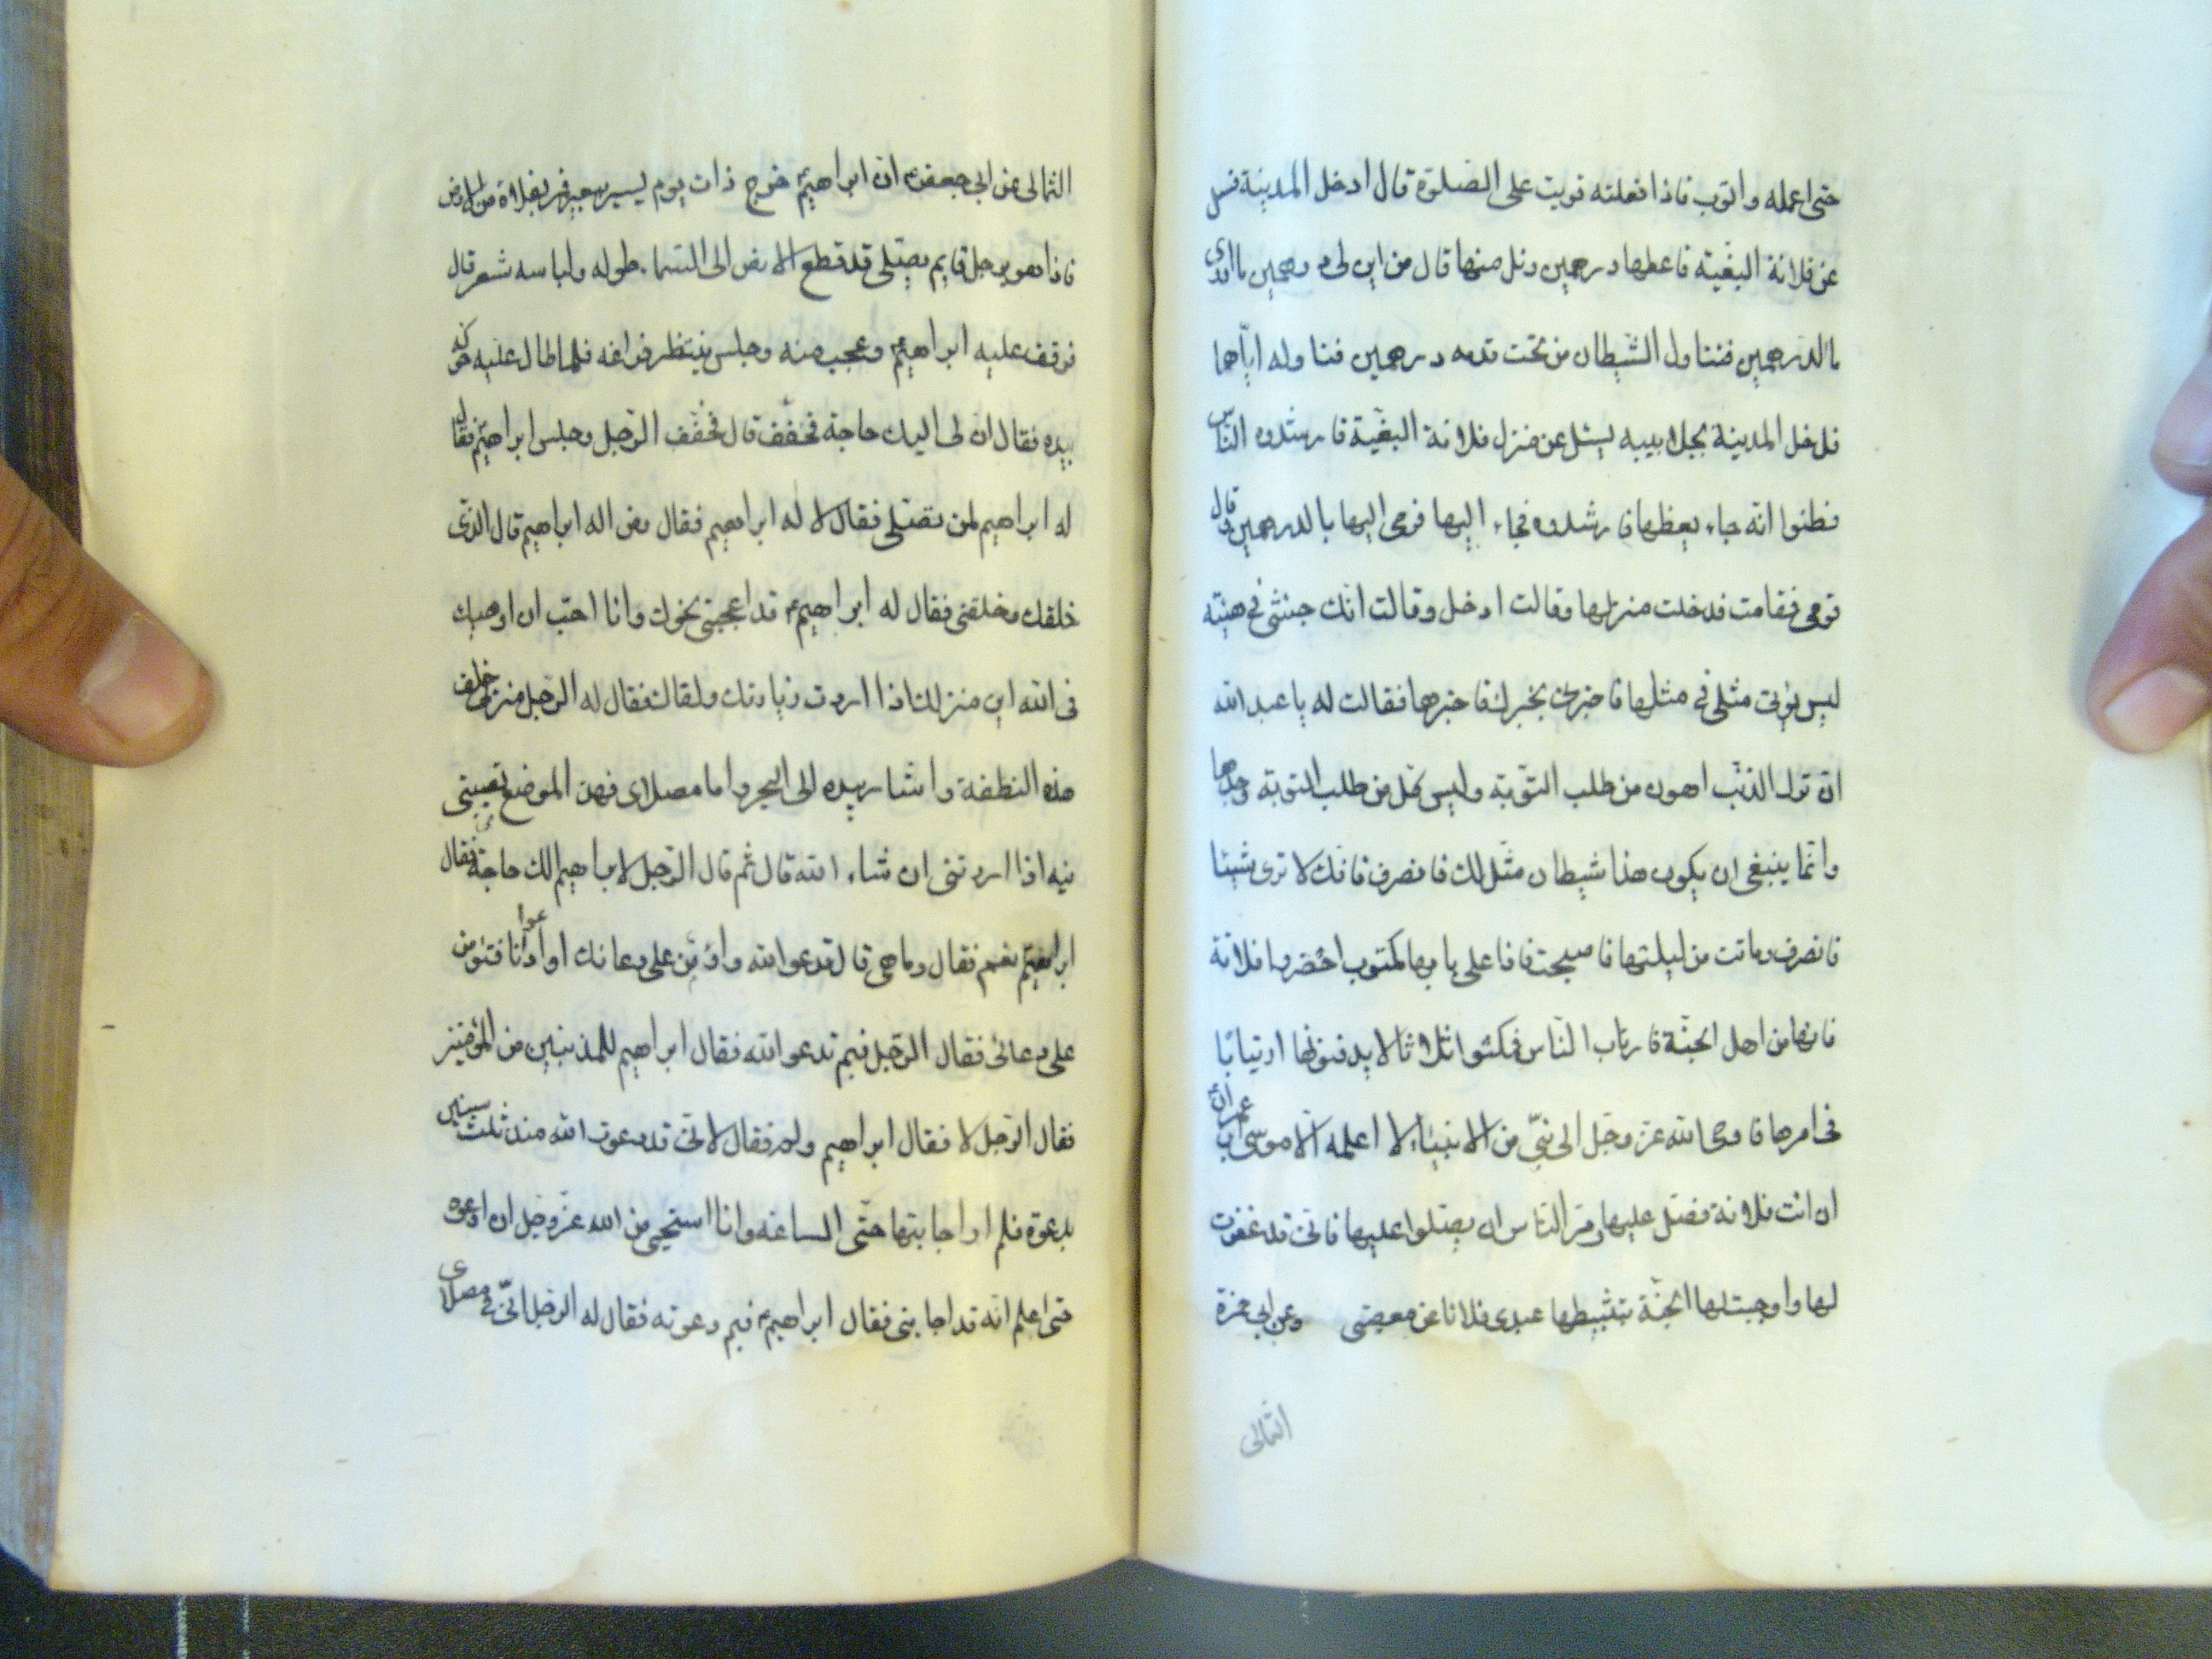 حتى اعمله واتوب فاذا فعلته قويت على الصلوة قال ادخل المدينة فسل
عن فلانة البغية فاعطها درهمين ونل منها قال من اين لى درهمين ما ادرى
ما الدرهمين فتناول الشيطان من تحت قدمه درهمين فناوله اياهما
فدخل المدينة بجلابيبه يسئل عن منزل فلانة البغية فارشدوه الناس
فظنوا انه جاء يعظها فارشدوه فجاء اليها فرمى اليها بالدرهمين قال
قومى فقامت فدخلت منزلها وقالت ادخل وقالت انك جئتنى فى هيئة
ليس يؤتى مثلى فى مثلها فاخبرنى بخبرك فاخبرها فقالت له يا عبد الله
ان ترك الذنب اهون من طلب التوبة وليس كل من طلب التوبة وجدها
وانما ينبغى ان يكون هذا شيطان مثل لك فانصرف فانك لا ترى شيئا
فانصرف وماتت من ليلتها فاصبحت فاذا على بابها مكتوب احضروا فلانة
فانها من اهل الجنة فارتاب الناس فمكثوا ثلاثا لا يدفنونها ارتيابا
فى امرها فاوحى الله عز وجل الى نبى من الانبياء لا اعلمه الا موسى بن عمران
ان ائت فلانة فصل عليها ومر الناس ان يصلوا عليها فانى قد غفرت
لها واوجبت لها الجنة بتثبيطها عبدى فلانا عن معصيتى وعن ابى حمزة
الثمالى
الثمالى عن ابى جعفر ع ان ابراهيم ع خرج ذات يوم يسير ببعير فمر بفلاة من الارض
فاذا هو برجل قايم يصلى قد قطع الارض الى السماء طوله ولباسه شعر قال
فوقف عليه ابراهيم ع وعجب منه وجلس ينتظر فراغه فلما طال عليه حركه
بيده فقال ان لى اليك حاجة فخفف قال فخفف الرجل وجلس ابراهيم ع فقال
له ابراهيم لمن تصلى فقال لاله ابراهيم فقال ومن اله ابراهيم قال الذى
خلقك وخلقنى فقال له ابراهيم ع قد اعجبنى نحوك وانا احب ان اوخيك
فى الله اين منزلك اذا اردت زيارتك ولقائك فقال له الرجل منزلى خلف
هذه النطفة واشار بيده الى البحر واما مصلاى فهذا الموضع تصيبنى
فيه اذا اردتنى ان شاء الله قال ثم قال الرجل لابراهيم الك حاجة فقال
ابراهيم نعم فقال وما هى قال تدعوا الله واؤمن على دعائك او ادعوا انا فتؤمن
على دعائى فقال الرجل فيم تدعوا الله فقال ابراهيم للمذنبين من المؤمنين
فقال الرجل لا فقال ابراهيم ولم فقال لانى قد دعوت الله منذ ثلث سنين
بدعوة فلم ار اجابتها حتى الساعة وانا استحيى من الله عز وجل ان ادعوه
حتى اعلم انه قد اجابنى فقال ابراهيم ع فيم دعوته فقال له الرجل انى فى مصلاى